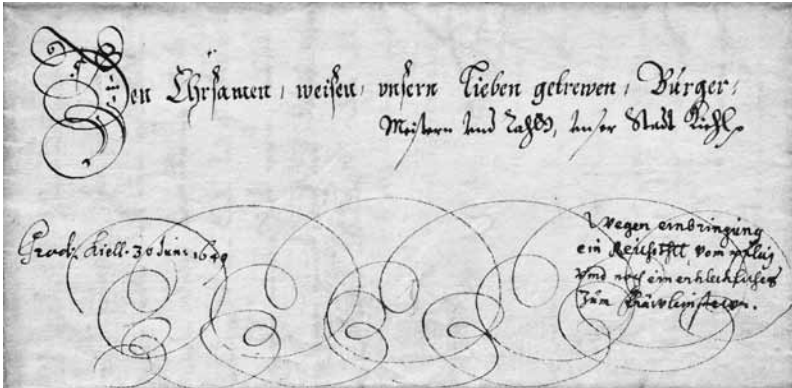 Den Ehrsamen, weisen, unsern Lieben getrewen, Bürger-
Meistern und Rahtt, unser Stadt Kiehl
Prod. Kiell. 30 Juni 1649
Wegen einbringung
ein Reichsthl vom pflug
vnd noch ein erkleckliches
zum Fräwleinstewr.